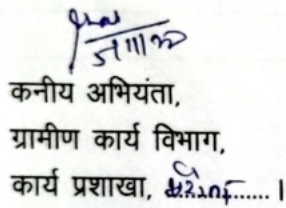 कनीय अभियंता,
ग्रामीण कार्य विभाग,
कार्य प्रशाखा, ...... ।